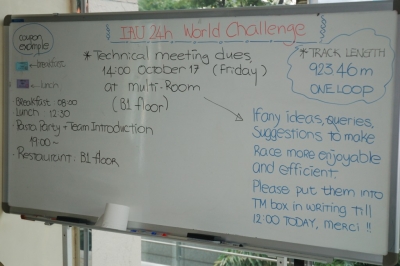 IAU 24h World Challenge
coupon
example
←breakfast
←lunch
Breakfast 08:00
Lunch 12:30
Pasta Party + Team Introduction
19:00~
- Restaurant : B1 floor
* Technical meeting dues,
14:00 October 17 (Friday)
at multi-Room
(B1 floor)
* TRACK LENGTH
923.46m
ONE LOOP
If any ideas, queries,
Suggestions to make
Race more enjoyable
and efficient.
Please put them into
TM box in writing till
12:00 TODAY, merci !!